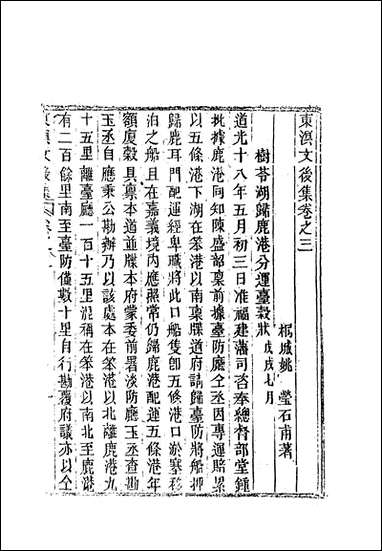 東溟文後集卷之三
桐城姚瑩石甫著
樹苓湖歸鹿港分運臺穀狀 戊戌七月
道光十八年五月初三日准福建藩司咨奉總督部堂鍾
批據鹿港同知陳盛韶稟前據臺防廳仝丞因專運賠累
以五條港下湖在笨港以南稟牒道府請歸臺防將船押
歸鹿耳門配運經卑職將此口船隻卽五條港口淤塞移
泊之船且在嘉義境內應照常仍歸鹿港配運五條港年
額廈穀具稟本道並牒本府蒙委前署淡防廳玉丞查勘
玉丞自應秉公勘辦乃以該處本在笨港以北離鹿港九
十五里離臺廳一百十五里混稱在笨港以南北至鹿港
有二百餘里南至臺防僅數十里自行勘覆府議亦以仝
東溟文後集 卷三 一